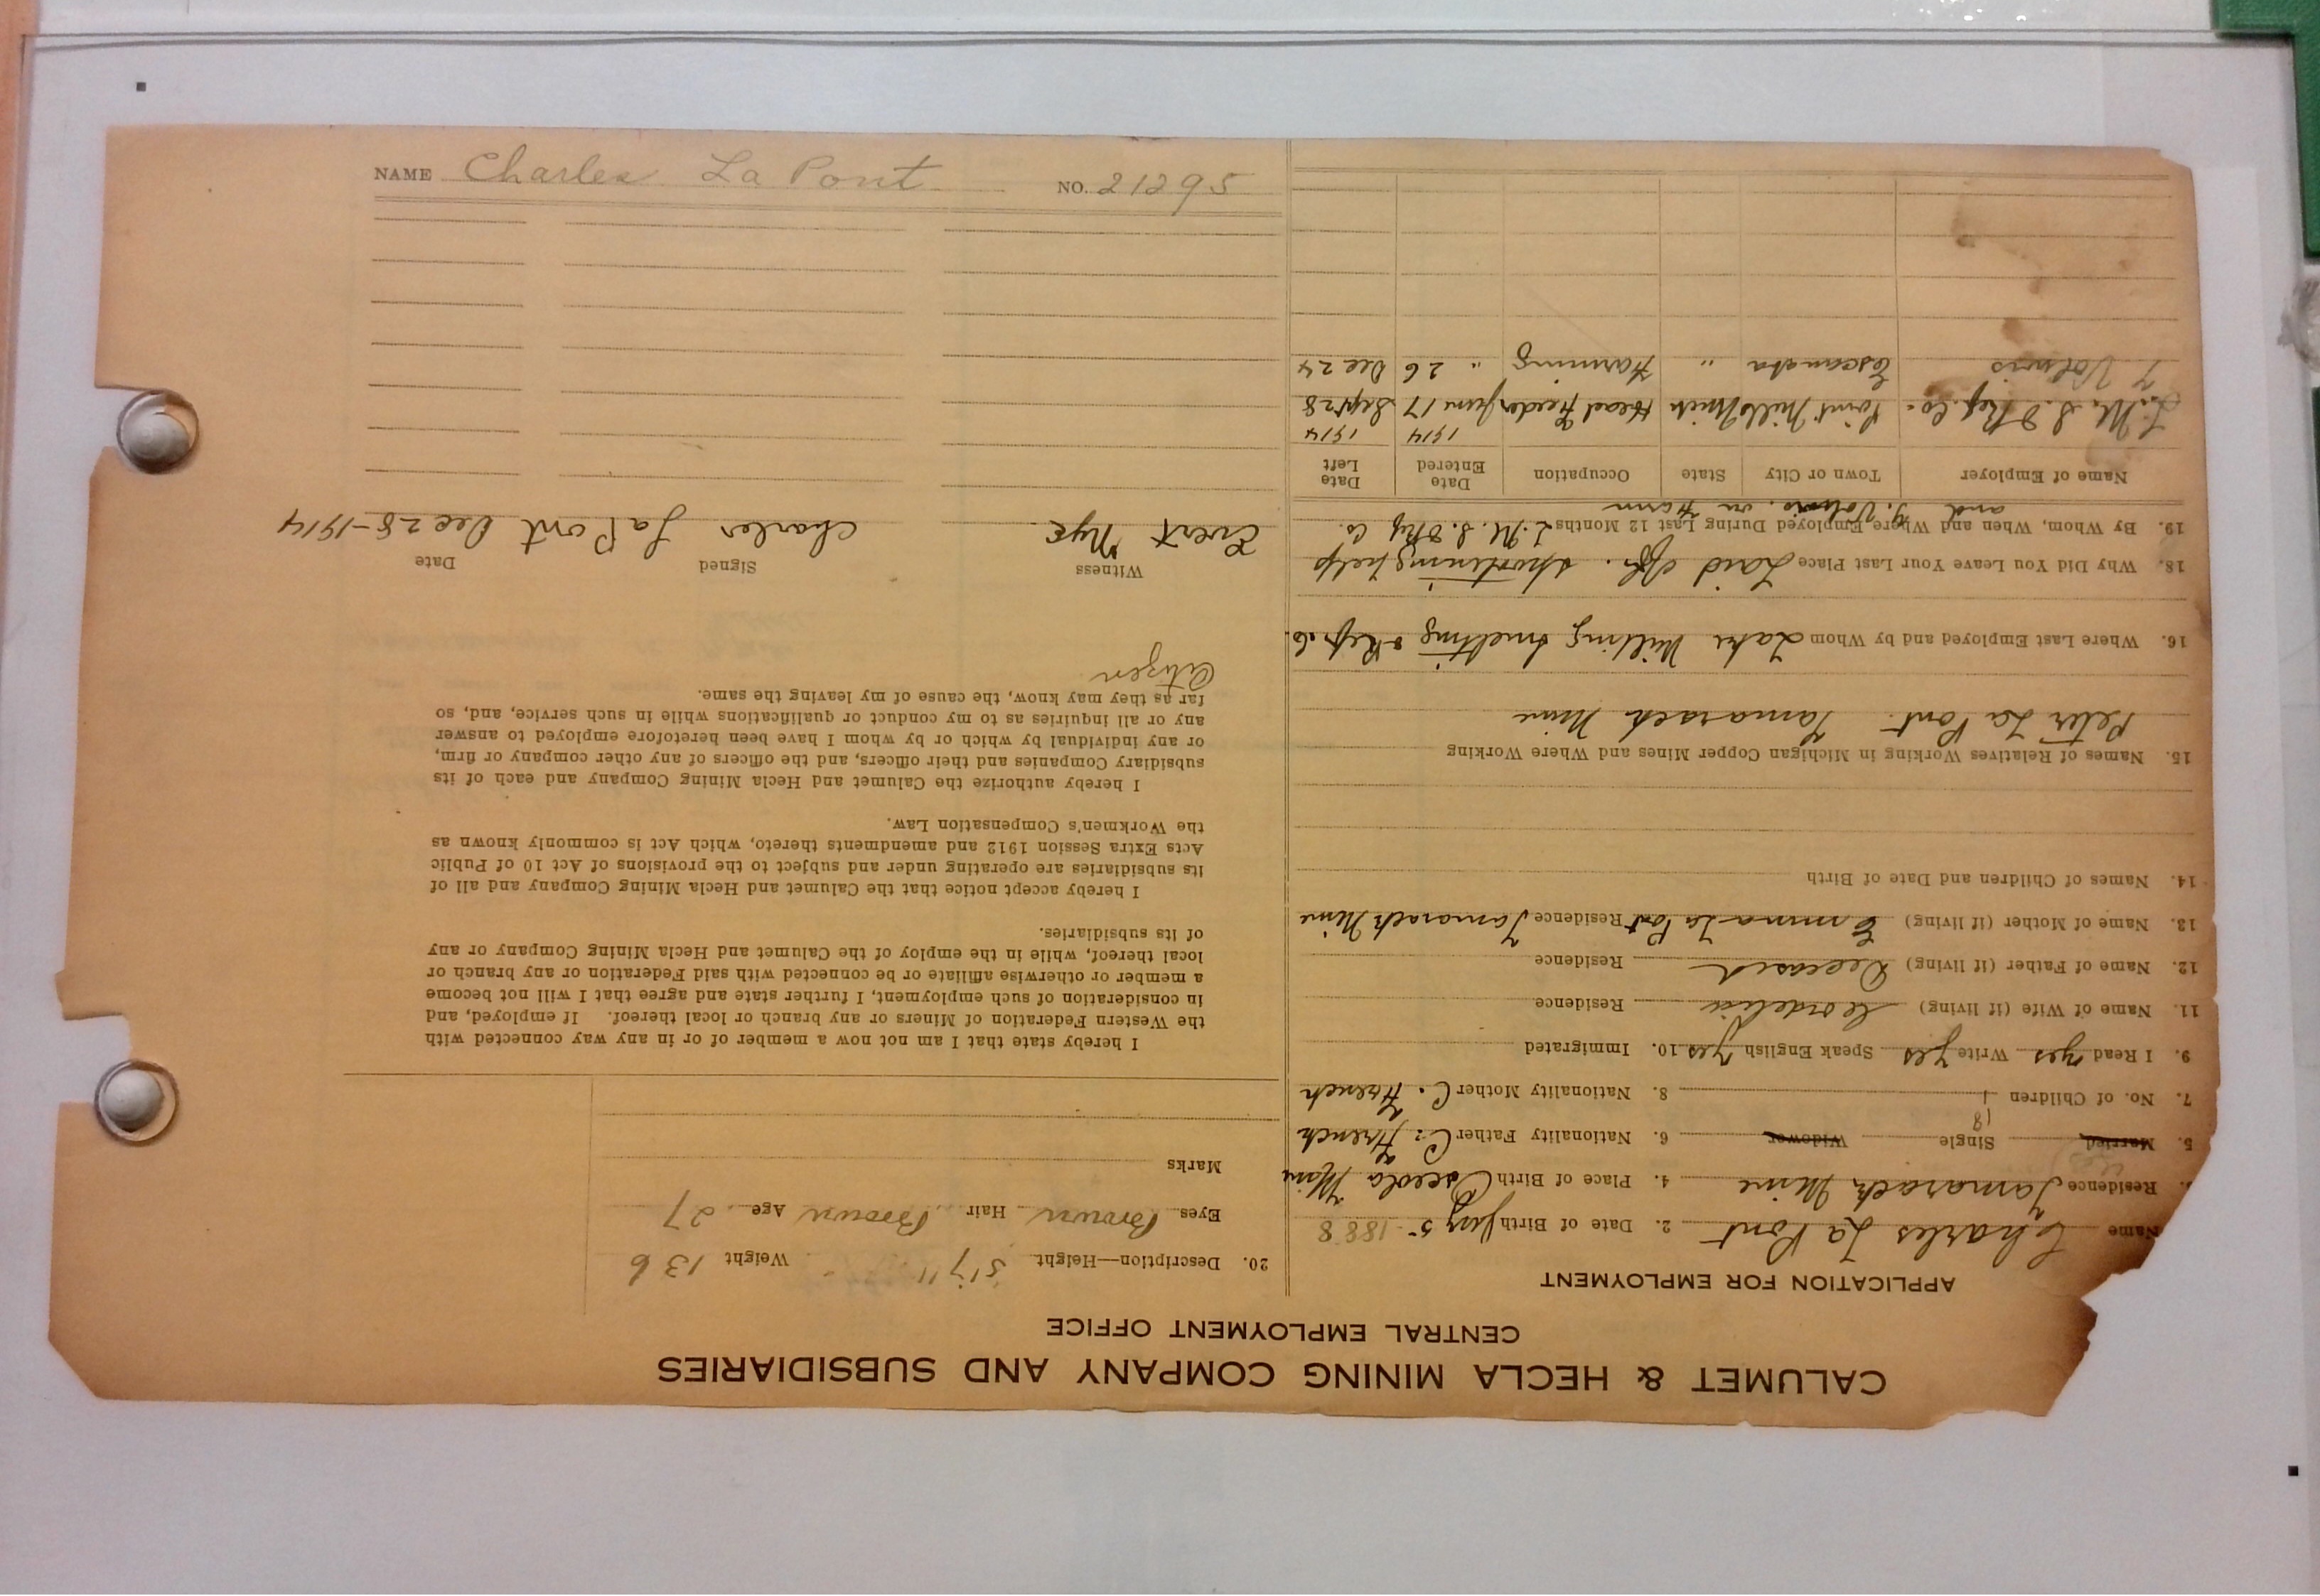 CALUMET & HECLA MINING COMPANY AND SUBSIDIARIES
CENTRAL EMPLOYMENT OFFICE
APPLICATION FOR EMPLOYMENT
Name Charles La Pont 2. Date of Birth 5 - 1888
Residence Tamarack Mine 4. Place of Birth Osceola Mine
5. Married Single Widower 6. Nationality Father C. French
7. No. of Children 1 8. Nationality Mother C. French
9. I Read yes Write yes Speak English yes 10. Immigrated
11. Name of Wife (if living) Residence
12. Name of Father (if living) Deceased Residence
13. Name of Mother (if living) Emma La Pont Residence Tamarack Mine
14. Names of Children and Date of Birth
15. Names of Relatives Working in Michigan Copper Mines and Where Working
Peter La Pont. Tamarack Mine
16. Where Last Employed and by Whom Lake Milling Smelting & Ref. Co.
18. Why Did You Leave Your Last Place Laid off. shortening help
19. By Whom, When and Where Employed During Last 12 Months L. M. S. & Ref Co.
and on Farm
Name of Employer Town or City State Occupation Date Entered Date Left
1914 1914
L. M. S. & Ref. Co. Point Mills Mich Head Feeder June 17 Sept 28
Escanaba " Farming " 26 Dec 24
20. Description—Height 5'7" Weight 136
Eyes Brown Hair Brown Age 27
Marks
I hereby state that I am not now a member of or in any way connected with
the Western Federation of Miners or any branch or local thereof. If employed, and
in consideration of such employment, I further state and agree that I will not become
a member or otherwise affiliate or be connected with said Federation or any branch or
local thereof, while in the employ of the Calumet and Hecla Mining Company or any
of its subsidiaries.
I hereby accept notice that the Calumet and Hecla Mining Company and all of
its subsidiaries are operating under and subject to the provisions of Act 10 of Public
Acts Extra Session 1912 and amendments thereto, which Act is commonly known as
the Workmen's Compensation Law.
I hereby authorize the Calumet and Hecla Mining Company and each of its
subsidiary Companies and their officers, and the officers of any other company or firm,
or any individual by which or by whom I have been heretofore employed to answer
any or all inquiries as to my conduct or qualifications while in such service, and, so
far as they may know, the cause of my leaving the same.
Citizen
Witness Signed Date
Evert Nye Charles La Pont Dec 28-1914
NAME Charles La Pont NO. 21295